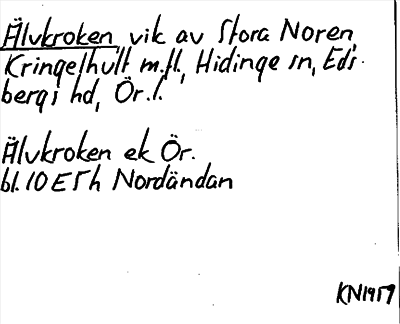 Älvkroken, vik av Stora Noren,
Kringelhult m.fl., Hidinge sn, Eds-
bergs hd, Ör.l.
Älvkroken ek Ör.
bl. 10E5h Nordändan
KN1959